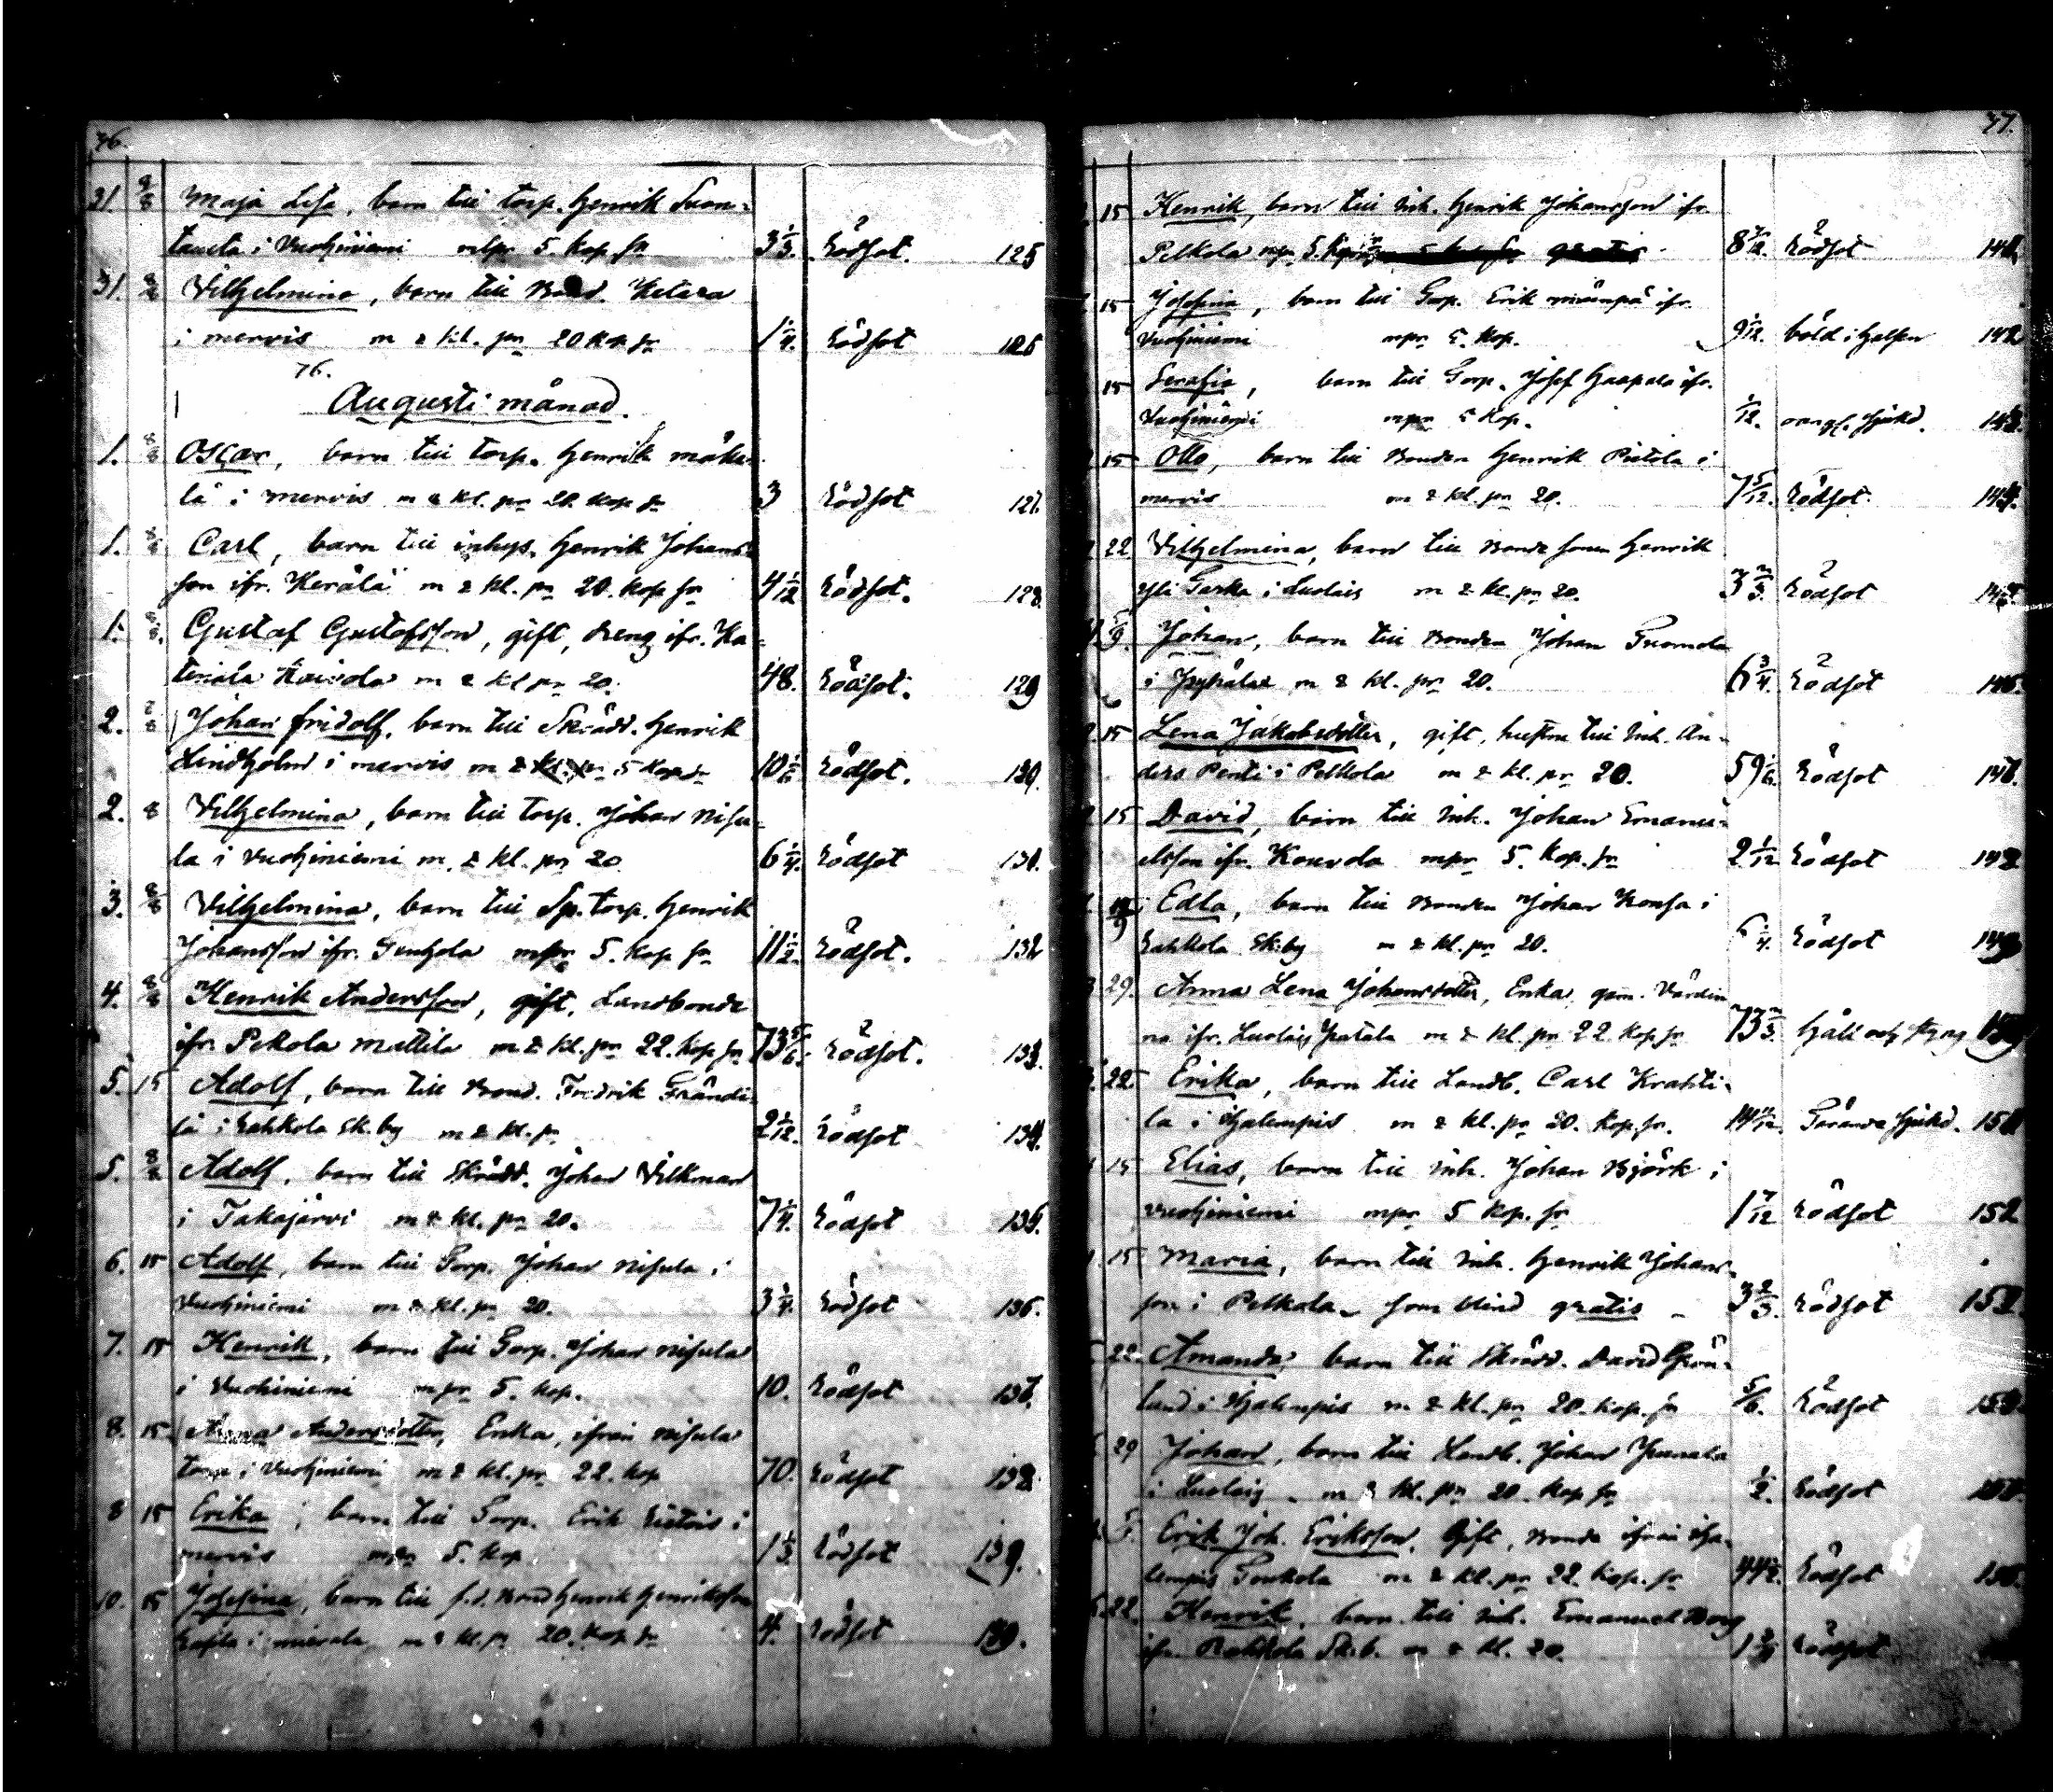 76.
31. 8/8 Maja Lisa, barn till torp. Henrik Suon-
tausta i Vuohiniemi mpr 5. kop sr 3 1/3. Rödsot. 125
31. 8/8 Vilhelmina, barn till Bond. Ketara
i mervis m 2 kl. pr 20 kop sr 1 1/4. Rödsot 126
76.
Augusti månad.
1. 8/8 Oscar, barn till torp. Henrik mäke-
lä i mervis m 2 kl. pr 20 kop sr 3 Rödsot 127.
1. 8/8 Carl, barn till inhys. Henrik Johans-
son ifr. Kerälä m 2 kl. pr 20. kop sr 4 1/12 Rödsot. 128.
1. 8/8. Gustaf Gustafsson, gift, dreng ifr. Ka-
teriala m 2 kl pr 20. 48. Rödsot. 129
2. 8 Johan fridolf, barn till Skrädd. Henrik
Lindholm i mervis m 5 kop sr 10 Rödsot. 130.
2. 8 Vilhelmina, barn till torp. Johan nisu-
la i vuohiniemi m. 2 kl. pr 20 6 1/4. Rödsot 131.
3. 8/8 Vilhelmina, barn till Sp. torp. Henrik
Johansson ifr. mpr 5. kop sr 11 1/2. Rödsot. 132
4. 8/8 Henrik Andersson, gift, Landbonde
ifr. Pekola mattila m 2 kl. pr 22. kop sr 73 5/6. Rödsot. 133.
5. 15 Adolf, barn till Bond. Fredrik
lä i Rahkola Sk.by m 2 kl. pr 2 1/12. Rödsot 134.
5. 8/8 Adolf, barn till Skrädd. Johan Vilkman
i Takajärvi m 2 kl. pr 20. 7 1/4. Rödsot 135.
6. 15 Adolf, barn till Torp. Johan nisula i
Vuohiniemi m 2 kl. pr 20. 3 Rödsot 136.
7. 15 Henrik, barn till Torp. Johan nisula
i Vuohiniemi mpr 5. kop. 10. Rödsot 137.
8. 15 Anna Andersdotter, Enka, ifrån nisula
torp i Vuohiniemi m 2 kl. pr 22. kop 70. Rödsot 138
8 15 Erika, barn till Torp. Erik i
mervis mpr 5. kop 1 1/3. Rödsot 139.
10. 15 Josefina, barn till f.d. Bond Henrik Henriksson
i mierola m 2 kl. pr 20. kop sr 4. Rödsot
77.
15 Henrik, barn till Inh. Henrik Johansson ifr.
Pelkola mpr 5. kop 8 Rödsot
15 Josefina, barn till Torp. Erik ifr.
Vuohiniemi mpr 5. kop. 9 1/12. böld i halsen 142
15 Serafia, barn till Torp. Josef Haapala ifr.
Vuohiniemi mpr 5 kop. 1/12. sjukd. 143.
15 Otto, barn till Bonden Henrik i
mervis m 2 kl. pr 20. 7 5/12. Rödsot. 144.
22 Vilhelmina, barn till Bonde sonen Henrik
i Luolais m 2 kl. pr 20. 3 2/3. Rödsot
Johan, barn till Bonden Johan Tuomola
i m 2 kl. pr 20. 6 3/4. Rödsot 146.
15 Lena Jakobsdotter, gift, hustru till Inh. An-
ders Penti i Pelkola m 2 kl. pr 20. 59 1/6. Rödsot 147.
15 David, barn till Inh. Johan Emanu-
elsson ifr. Kouvola mpr 5. kop. sr 2 1/12 Rödsot
Edla, barn till Bonden Johan i
Rahkola Sk.by m 2 kl. pr 20. 6 1/4. Rödsot 149
29. Anna Lena Johansdotter, Enka gam. Värdin
na ifr. Luolais m 2 kl. pr 22 kop sr 73 2/3. håll och styng
22 Erika, barn till Landb. Carl Krahti-
la i Hjalempis m 2 kl. pr 20. kop. sr. 14 Tärande sjukd. 151
15 Elias, barn till Inh. Johan Björk i
vuohiniemi mpr 5 kop. sr 1 7/12 Rödsot 152
15 Maria, barn till Inh. Henrik Johans-
son i Pelkola som blind gratis 3 2/3. Rödsot
22. Amanda barn till Skrädd. David Grön-
lund i Hjalempis m 2 kl. pr 20. kop. sr 5/6. Rödsot
29 Johan, barn till Landb. Johan
i Luolais m 2 kl. pr 20. kop sr 1/2. Rödsot
5. Erik Joh. Eriksson, Gift, Bonde ifrån Hja-
lempis m 2 kl. pr 22. kop. sr 44 1/2. Rödsot
22. Henrik, barn till Inh. Emanuel Borg
ifr. Rahkola Sk.b. m 2 kl. 20. Rödsot